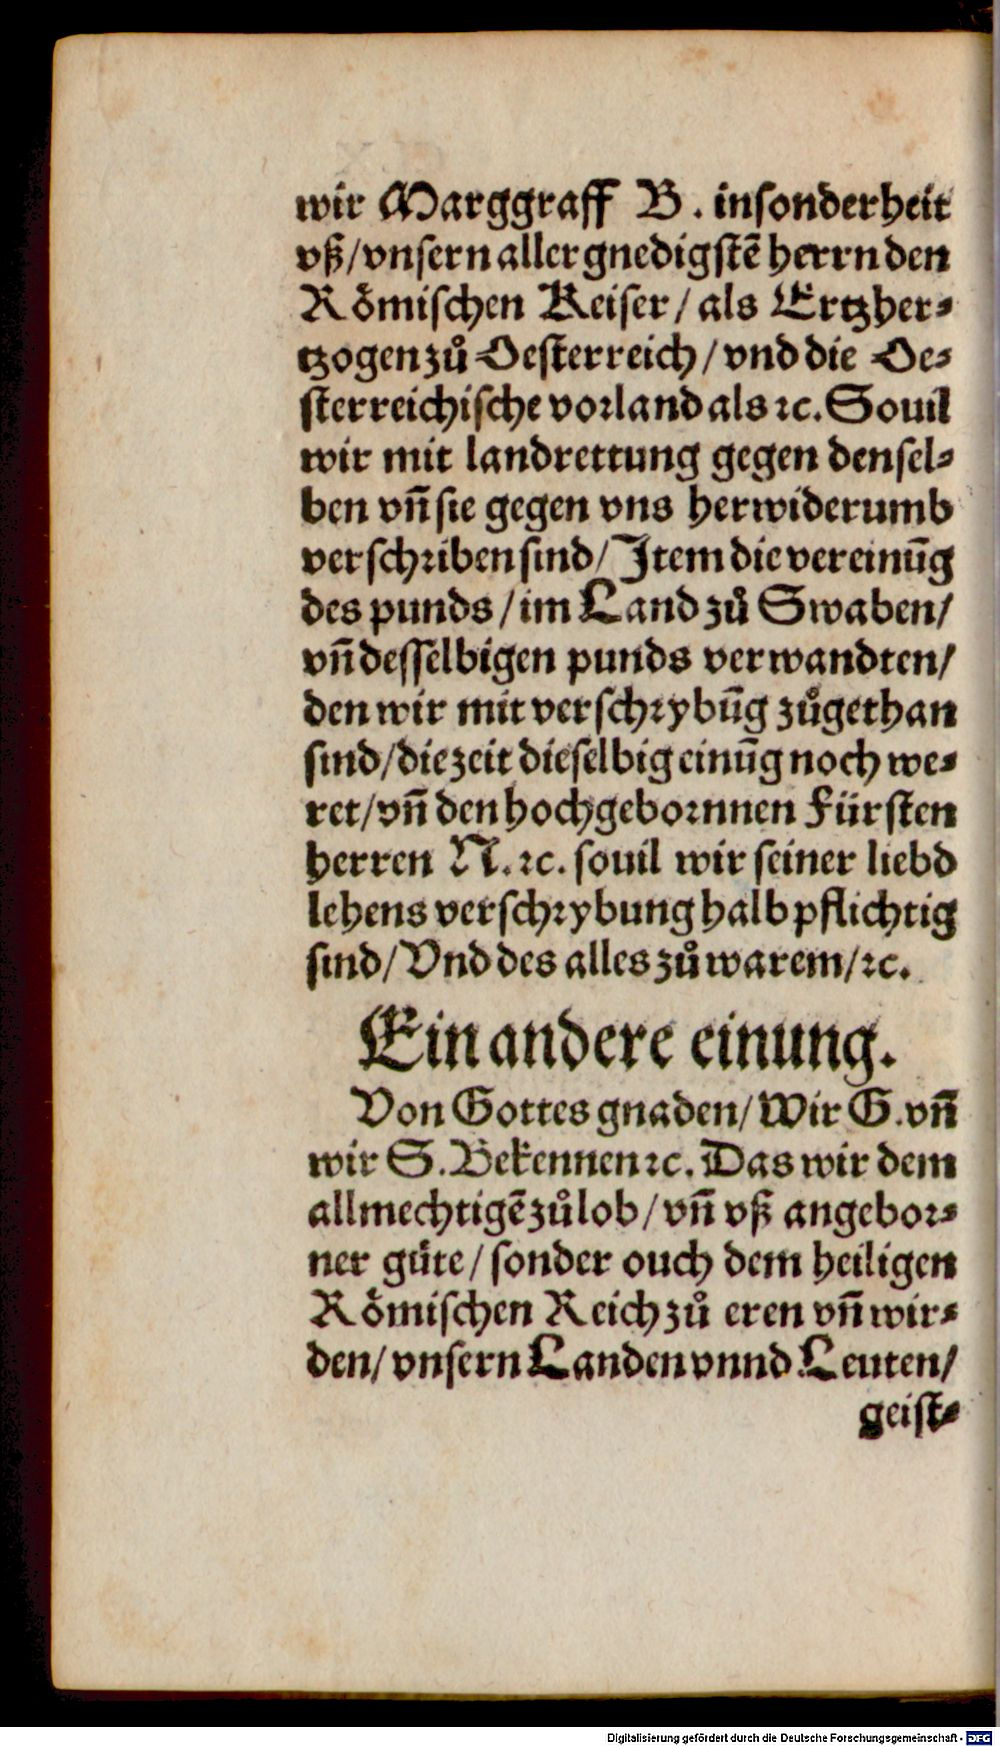 wir Marggraff B. inſonderheit
vß/vnſern aller gnedigſtē herrn den
Roͤmiſchen Keiſer/als Ertzher⸗
tzogen zuͦ Oeſterreich/vnd die Oe⸗
ſterreichiſche voꝛland als ꝛc. Souil
wir mit landrettung gegen denſel⸗
ben vñ ſie gegen vns herwiderumb
verſchꝛiben ſind/Item die vereinūg
des punds/im Land zuͦ Swaben/
vñ deſſelbigen punds verwandten/
den wir mit verſchꝛybūg zuͦgethan
ſind/die zeit dieſelbig einūg noch we⸗
ret/vñ den hochgeboꝛnnen Fürſten
herren N. ꝛc. ſouil wir ſeiner liebd
lehens verſchꝛybung halb pflichtig
ſind/Vnd des alles zuͦ warem/ꝛc.
Ein andere einung.
Von Gottes gnaden/Wir G. vñ
wir S. Bekennen ꝛc. Das wir dem
allmechtigē zuͦ lob/vñ vß angeboꝛ⸗
ner guͤte/ſonder ouch dem heiligen
Roͤmiſchen Reich zuͦ eren vñ wir⸗
den/vnſern Landen vnnd Leuten/
geiſt⸗
Digitalisierung gefördert durch die Deutsche Forschungsgemeinschaft - DFG